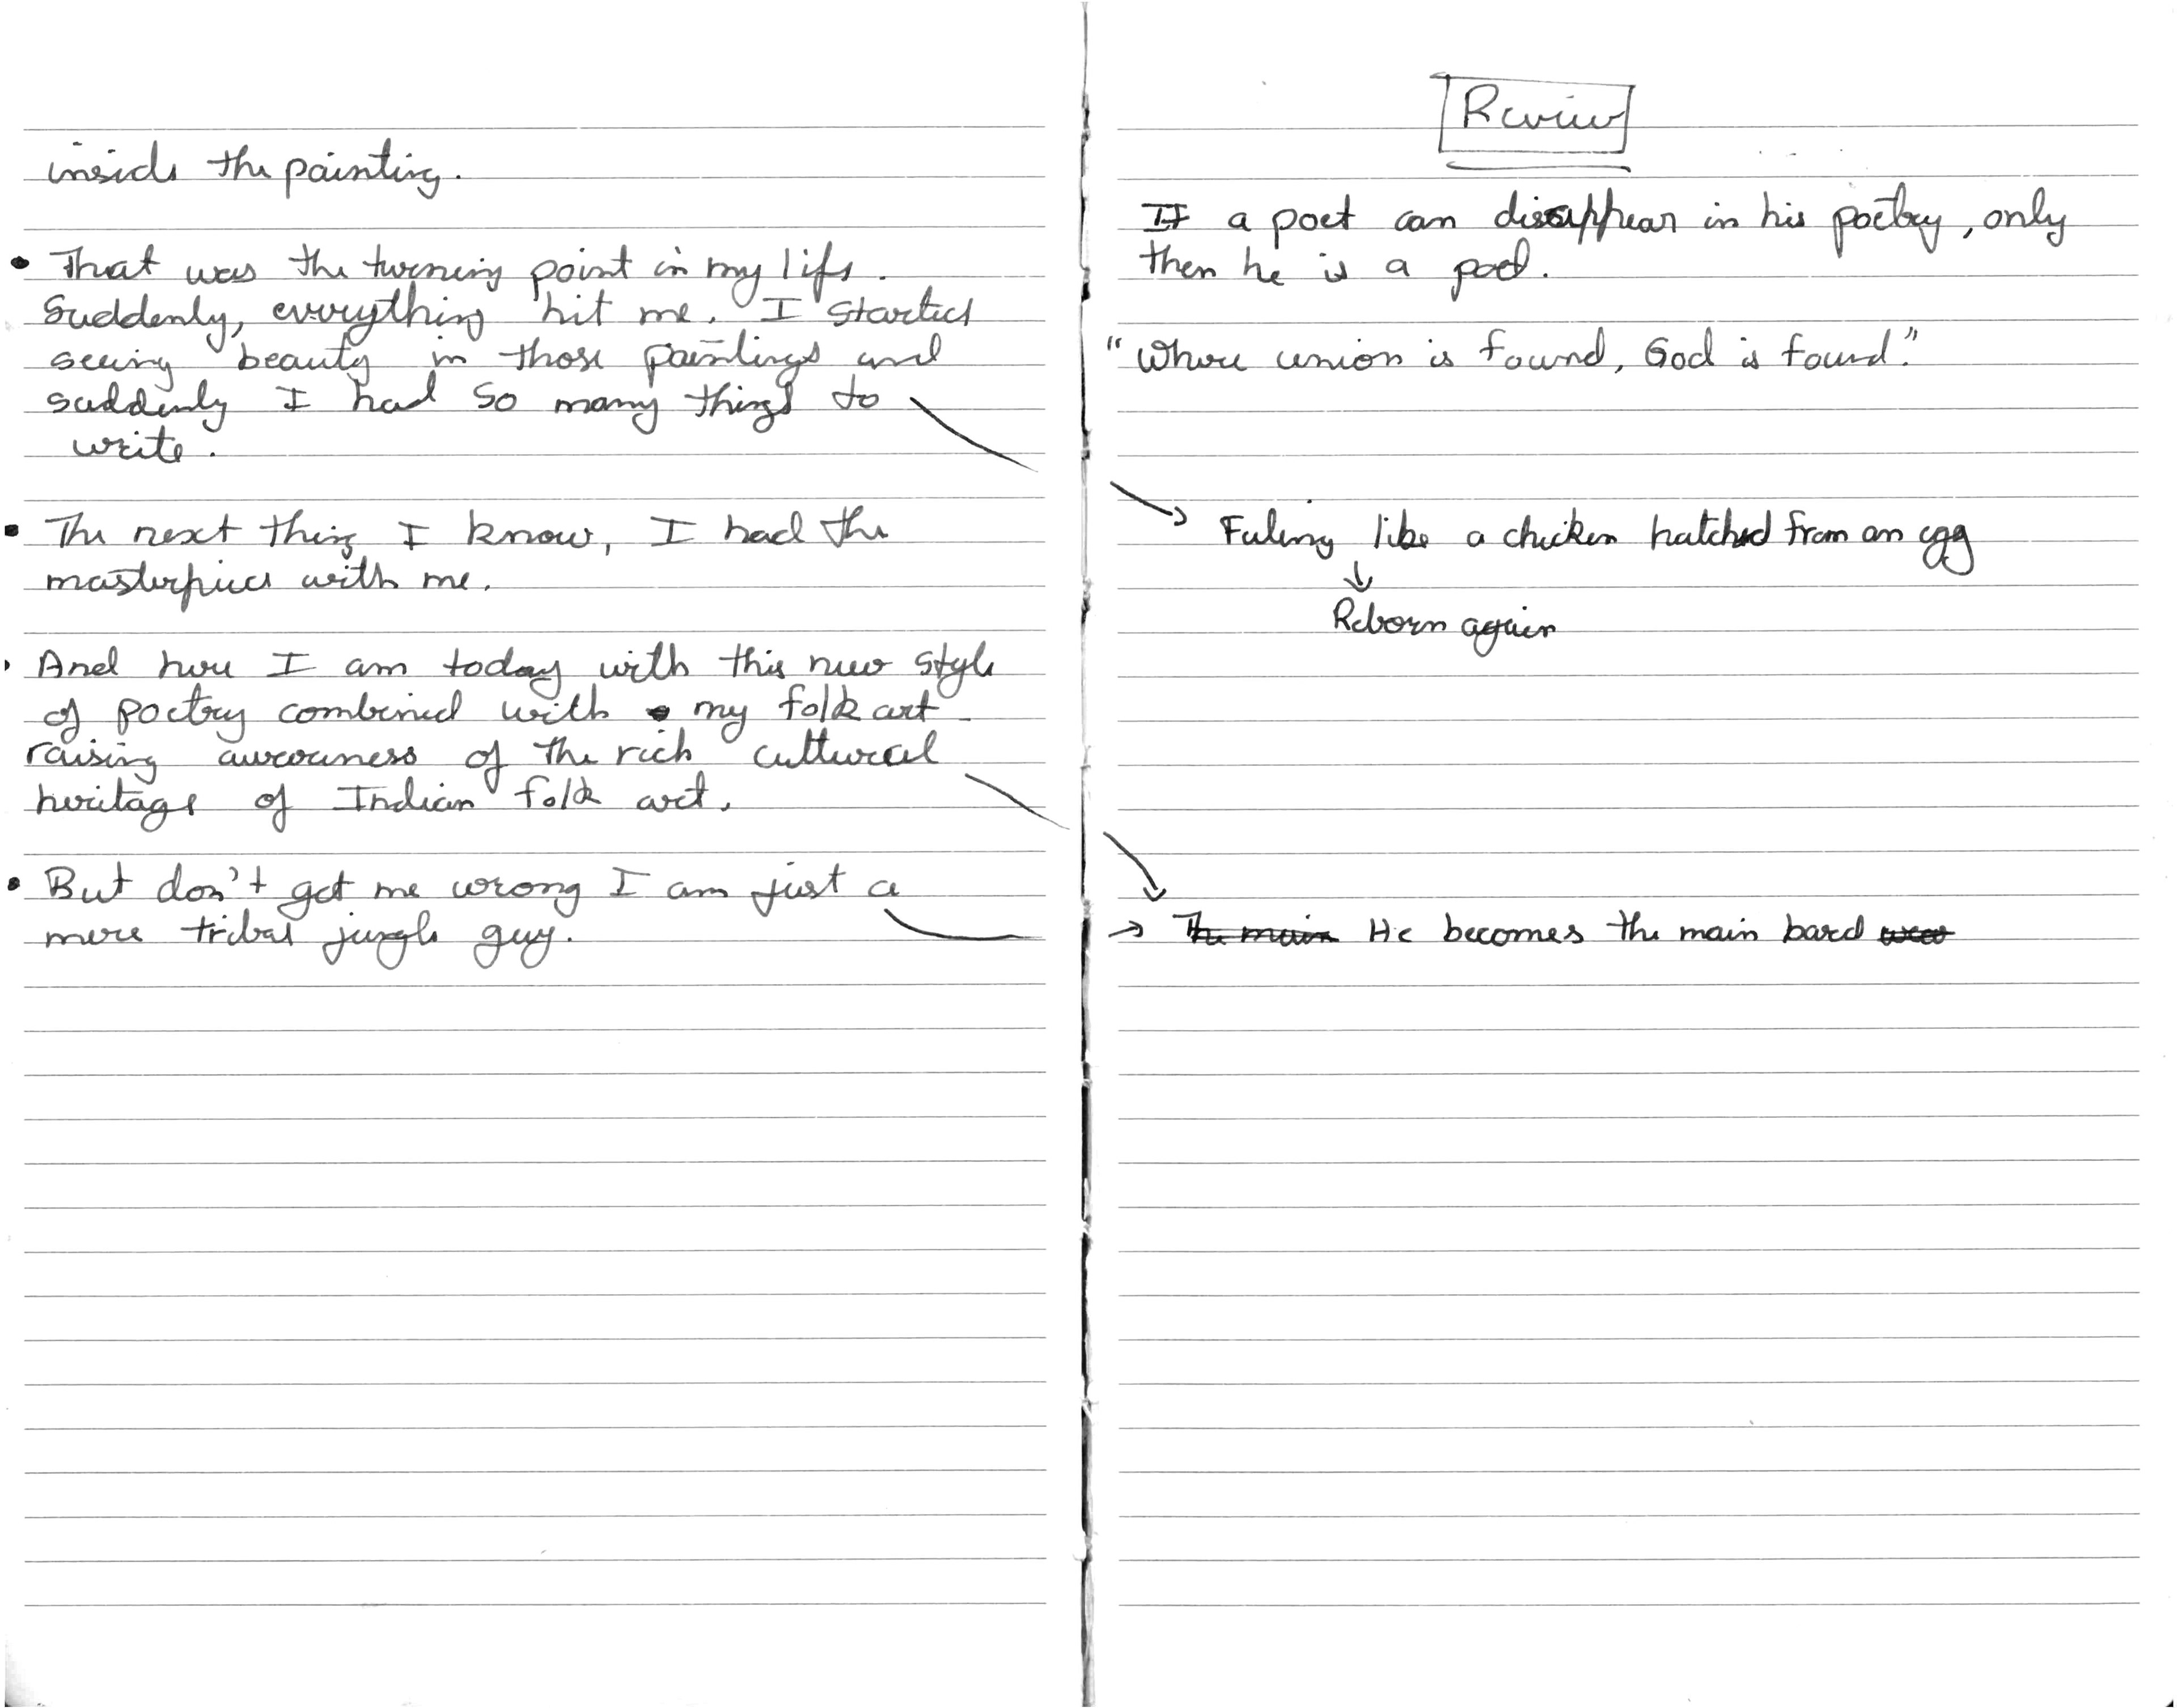 inside the painting.
• That was the turning point in my life.
Suddenly, everything hit me. I started
seeing beauty in those paintings and
suddenly I had so many things to
write.
• The next thing I know, I had the
masterpiece with me.
• And here I am today with this new style
of poetry combined with my folk art
raising awareness of the rich cultural
heritage of Indian folk art.
• But don't get me wrong I am just a
mere tribal jungle guy.
Review
If a poet can disappear in his poetry, only
then he is a poet.
"Where union is found, God is found."
→ Feeling like a chicken hatched from an egg
↓
Reborn again
→ The main He becomes the main bard